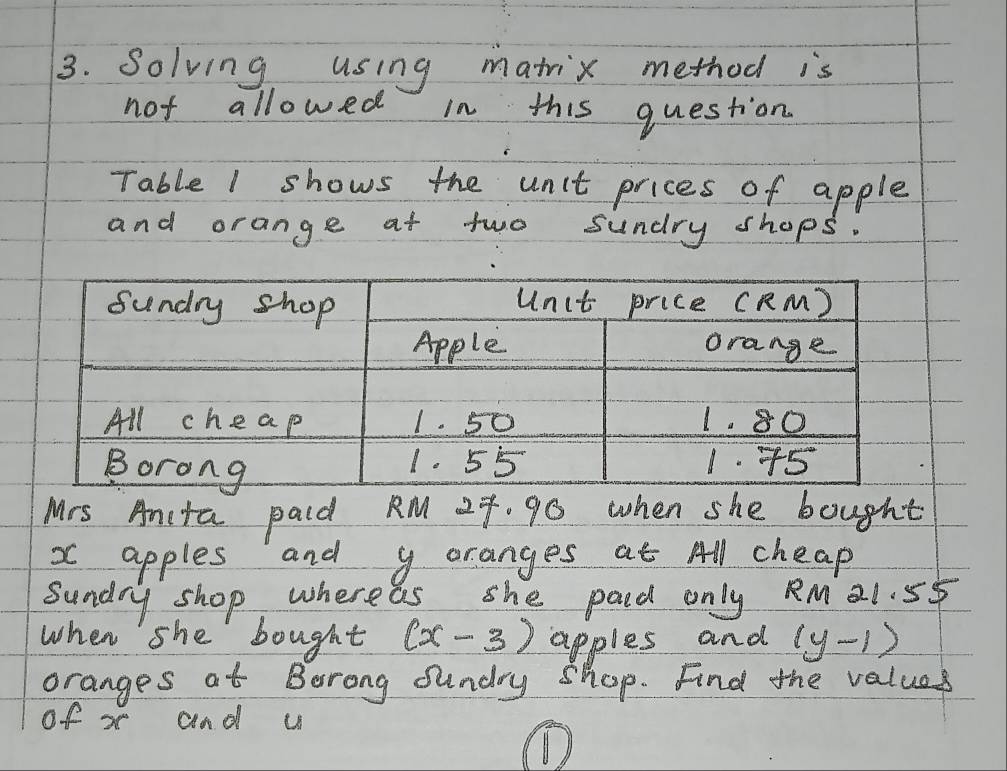 3. Solving using matrix method is
not allowed in this question
Table 1 shows the unit prices of apple
and orange at two sundry shops.
Sundry shop Unit price (RM)
Apple orange
All cheap 1.50 1.80
Borong 1.55 1.75
Mrs Anita paid RM 27.90 when she bought
x apples and y oranges at All cheap
Sundry shop whereas she paid only RM 21.55
when she bought (x-3) apples and (y-1)
oranges at Borong Sundry shop. Find the values
of x and y
1